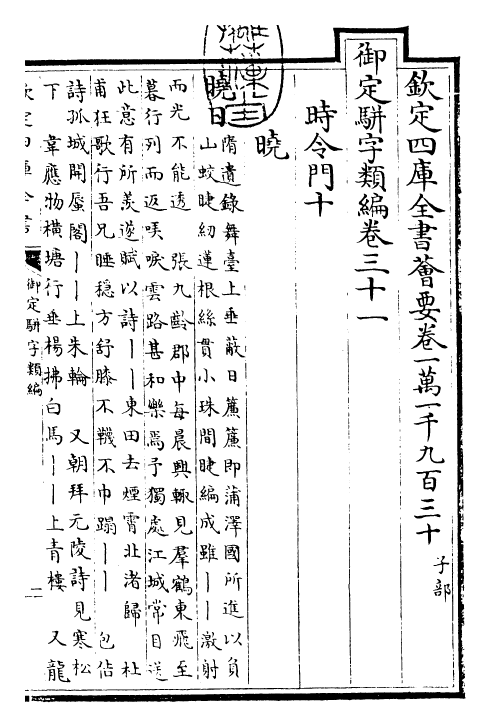 欽定四庫全書薈要卷一萬一千九百三十 子部
御定駢字類編卷三十一
時令門十
曉
曉日 隋遺錄舞臺上垂蔽日簾簾即蒲澤國所進以負
山蛟睫紉蓮根絲貫小珠間睫編成雖丨丨激射
而光不能透 張九齡郡中每晨興輒見羣鶴東飛至
暮行列而返哢唳雲路甚和樂焉予獨處江城常目送
此意有所羨遂賦以詩丨丨東田去煙霄北渚歸 杜
甫狂歌行吾兄睡穩方舒膝不韈不巾蹋丨丨 包佶
詩孤城開蜃閣丨丨上朱輪 又朝拜元陵詩見寒松
下 韋應物橫塘行垂楊拂白馬丨丨上青樓 又龍
欽定四庫全書
御定駢字類編